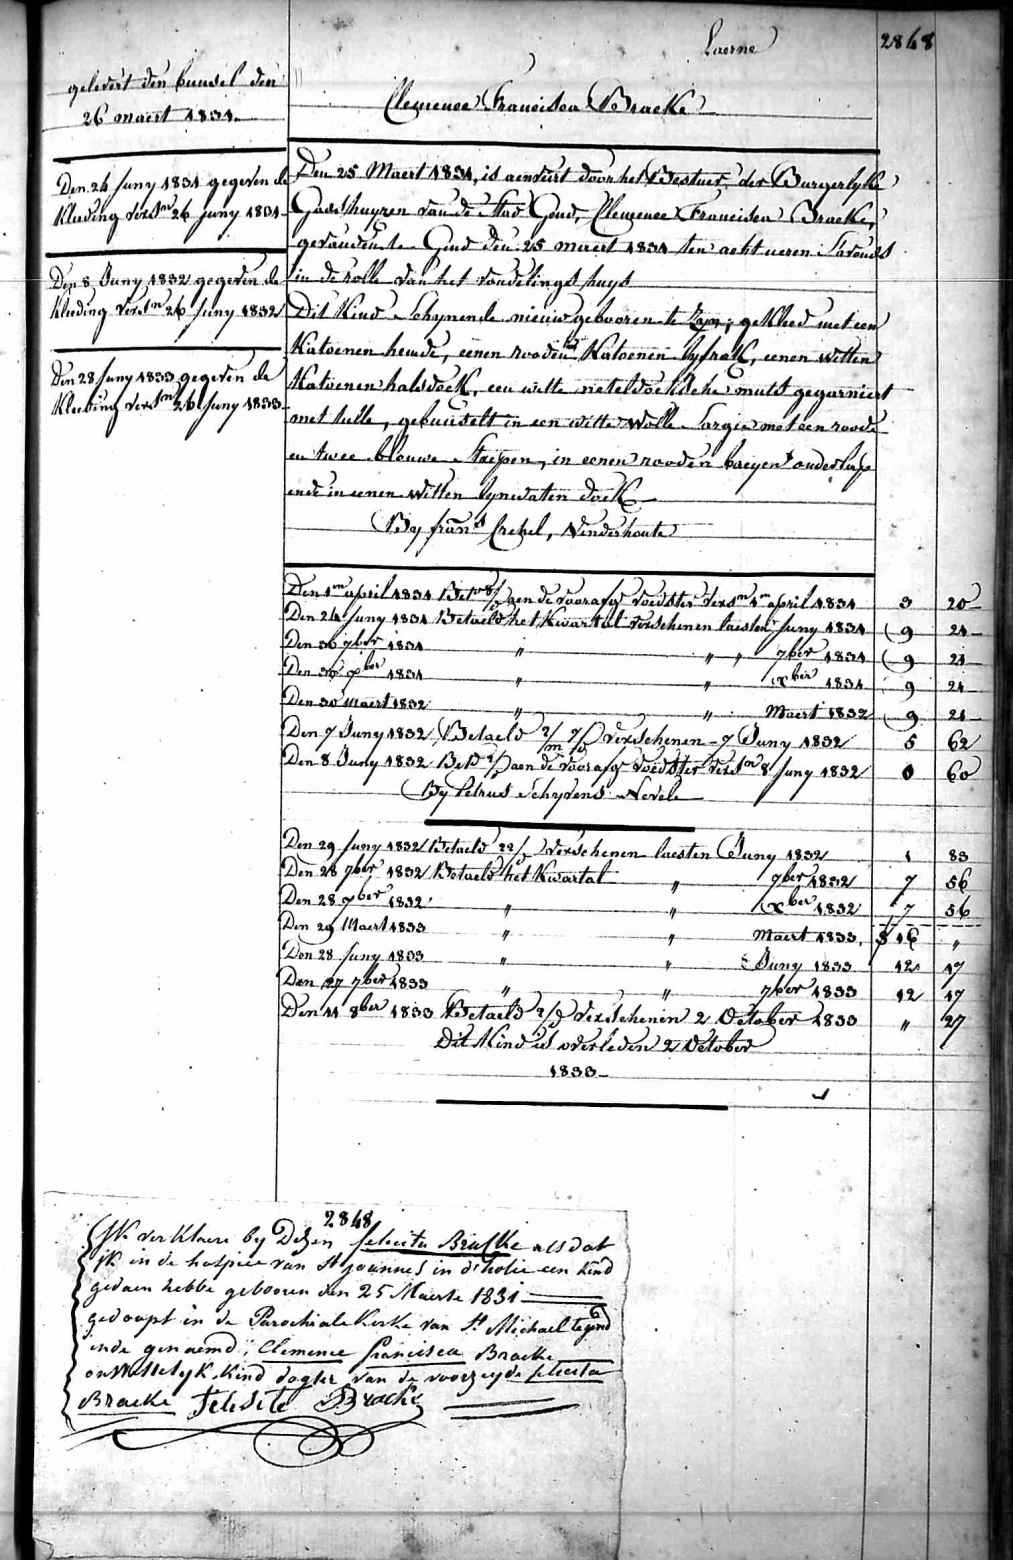 Laerne
2848
gelevert den bundel den
26 maert 1831.
Clemence Francisca Bracke
Den 24 Juny 1831 gegeven de
kleeding versn 26 Juny 1831
Den 8 Juny 1832 gegeven de
kleeding versn 26 Juny 1832
Den 28 Juny 1833 gegeven de
kleeding versn 26 Juny 1833
Den 25 Maert 1831, is aenveirt door het Bestuer der Burgerlyke
Godshuyzen van de Stad Gend, Clemence Francisca Bracke,
gevonden te Gend den 25 maert 1831 ten acht ueren s'avonds
in de rolle van het vondelings huys
Dit Kind schynende nieuw gebooren te zyn, gekleed met een
Katoenen hemde, eenen rooden Katoenen lyfrok, eenen witten
Katoenen halsdoek, een witte neteldoeksche muts gegarniert
met tulle, gebuiselt in een witte wolle sargie met een roode
en twee blouwe streepen, in eenen rooden baeyen onderlap
ende in eenen witten lynwaten doek
By frans Cretel, Vinderhoute
Den 1en april 1831 Bet aen de voorafg voedster versn 1en april 1831 3 20
Den 24 Juny 1831 Betaeld het Kwartal verschenen laesten Juny 1831 9 21
Den 30 7ber 1831 " " " 7ber 1831 9 21
Den 30 xber 1831 " " xber 1831 9 21
Den 30 Maert 1832 " " Maert 1832 9 21
Den 7 Juny 1832 Betaeld 2/m 7/d verschenen 7 Juny 1832 5 62
Den 8 Juny 1832 Bet aen de voorafg voedster versn 8 Juny 1832 0 60
By Petrus Schyvens Nevele
Den 29 Juny 1832 Betaeld 22/d verschenen laesten Juny 1832 1 83
Den 28 7ber 1832 Betaeld het Kwartal " 7ber 1832 7 56
Den 28 xber 1832 " " xber 1832 7 56
Den 29 Maert 1833 " " Maert 1833. 16 "
Den 28 Juny 1833 " " Juny 1833 12 17
Den 27 7ber 1833 " " 7ber 1833 12 17
Den 11 8ber 1833 Betaeld 2/d verschenen 2 October 1833 " 27
Dit Kind is overleden 2 October
1833
2848
Jk verklaere by Dezen felecita Bracke als dat
jk in de hospice van St joannes in d'holie een kind
gedaen hebbe gebooren den 25 Maerte 1831
gedoopt in de Parochiale kerke van St Michael te gend
ende genaemd; Clemence francisca Bracke
onwettelyk kind dogter van de voorzeyde felecita
Bracke Felesite Bracke